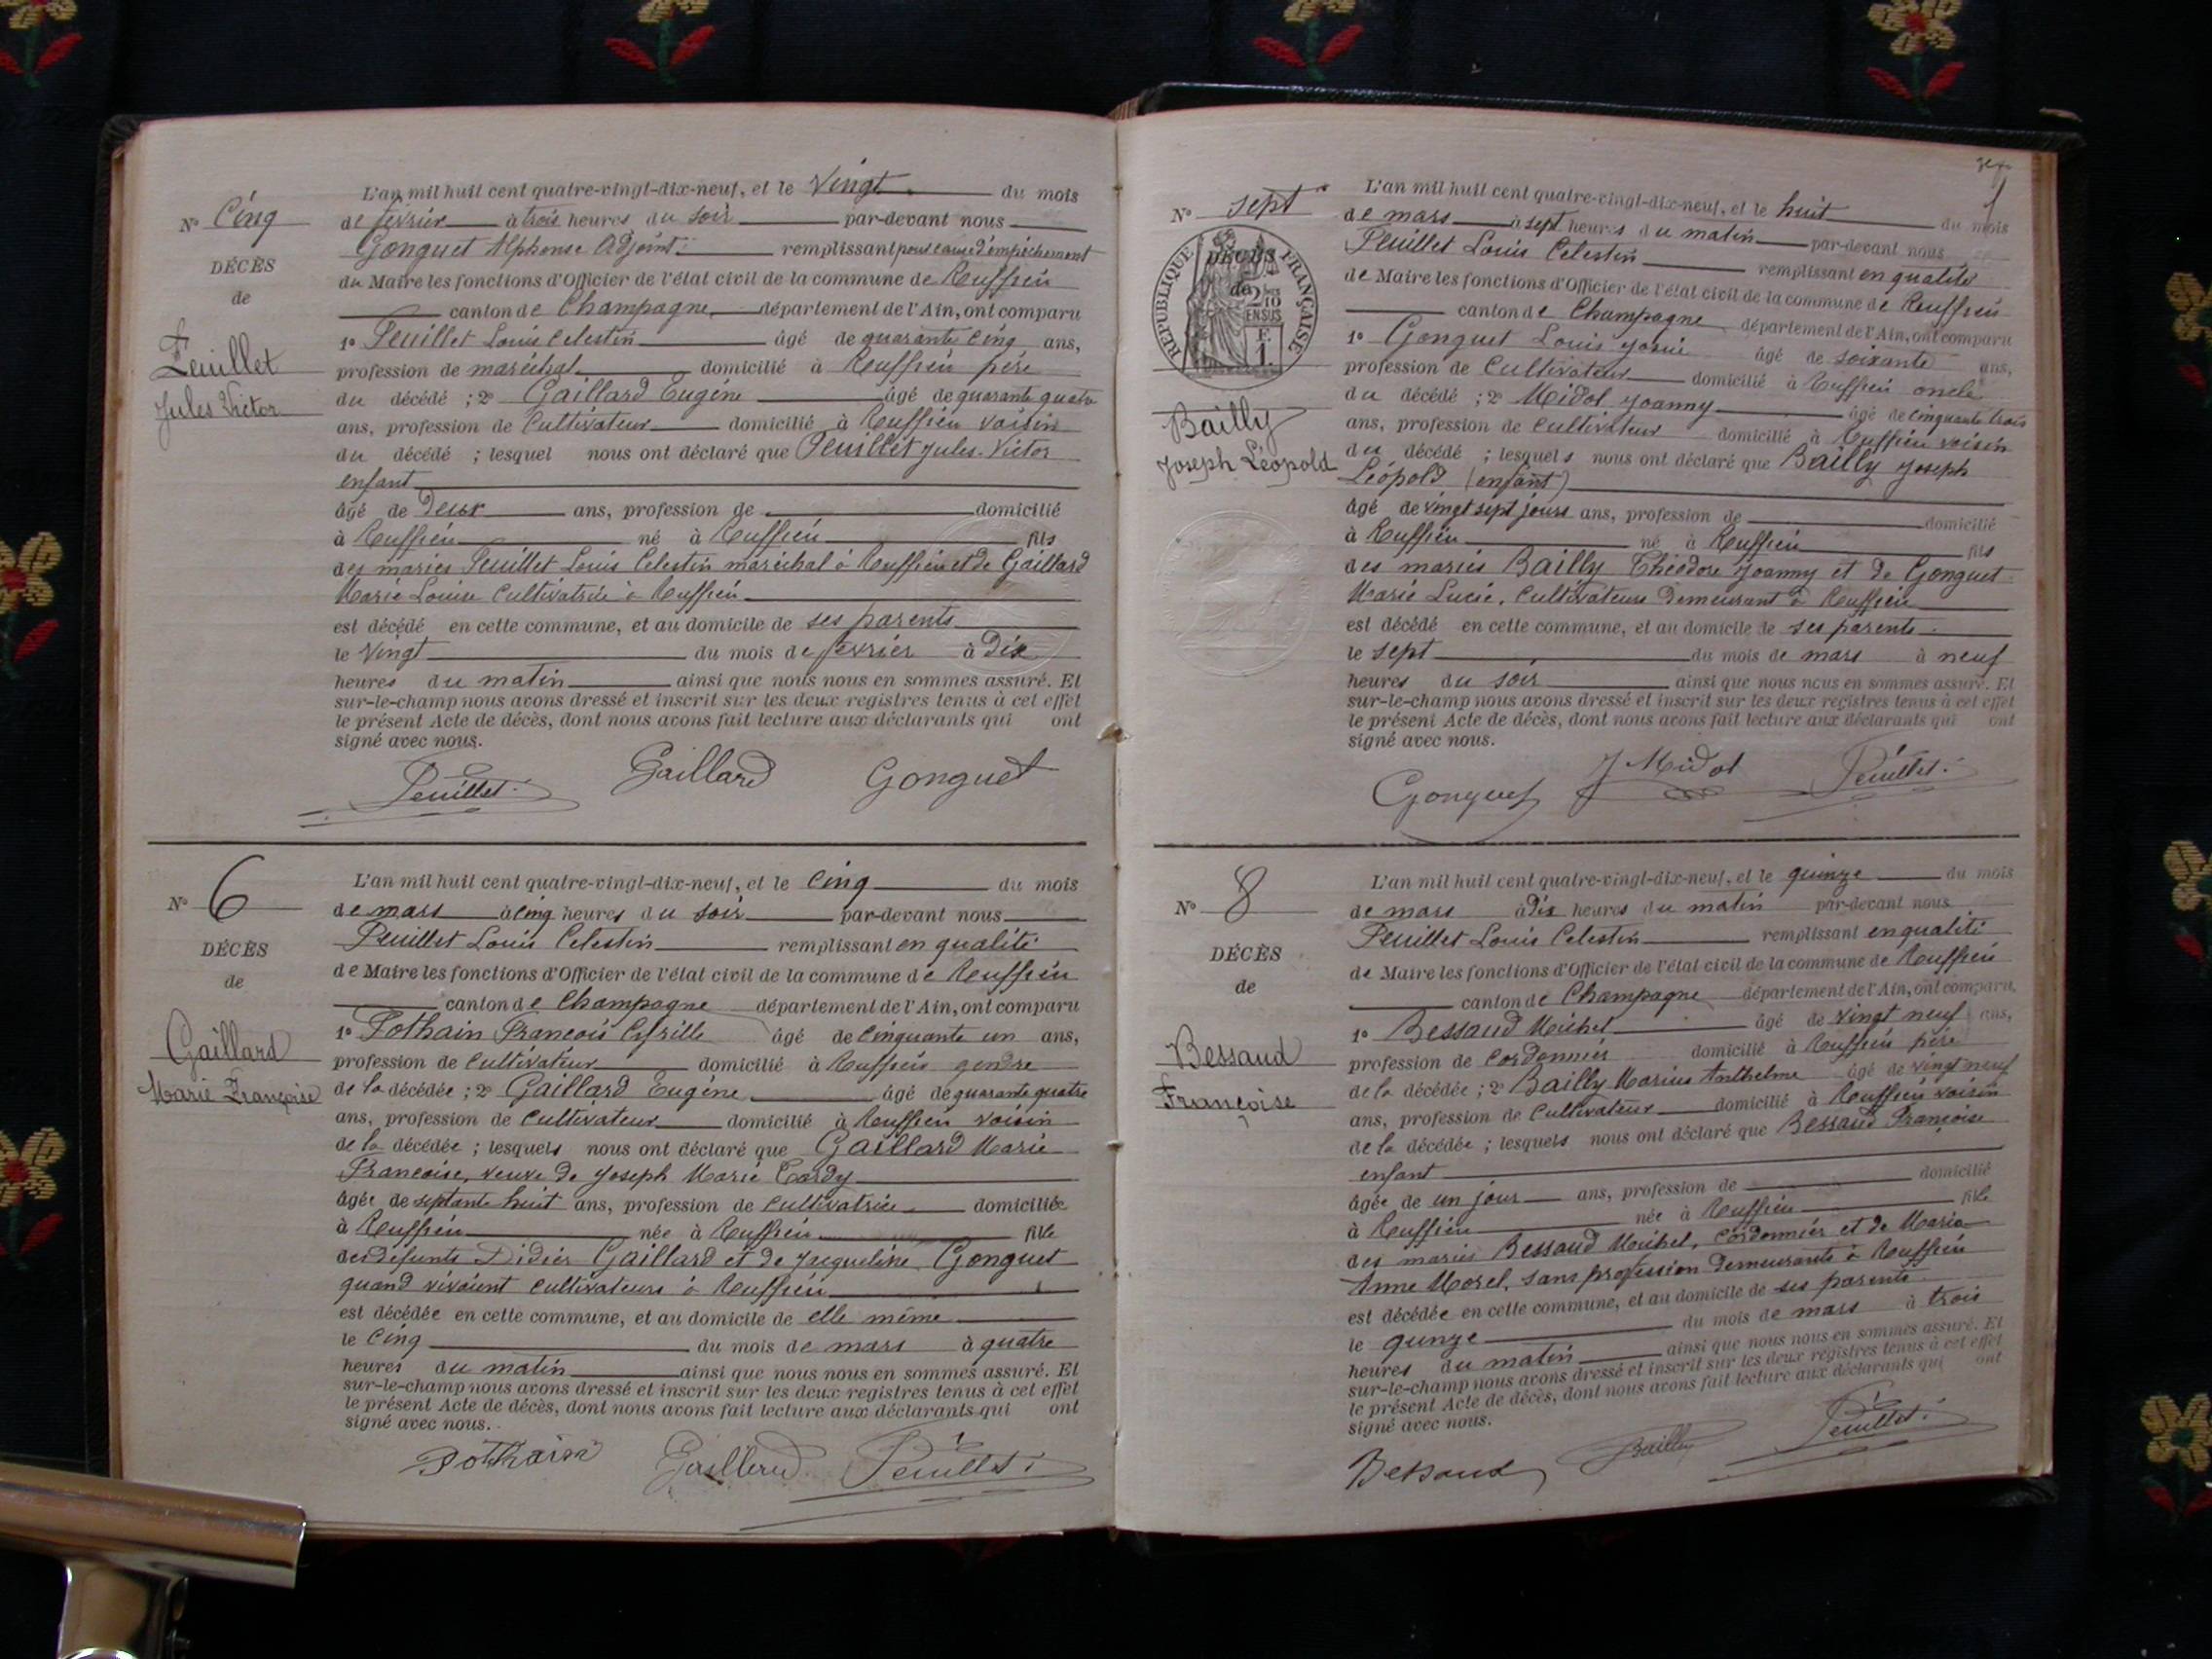 Nº Cinq
DÉCÈS
de
Feuillet
Jules Victor
L'an mil huit cent quatre-vingt-dix-neuf, et le vingt du mois
de février à trois heures du soir par-devant nous
Gonguet Alphonse Adjoint remplissant pour cause d'empêchement
du Maire les fonctions d'Officier de l'état civil de la commune de Ruffieu
canton de Champagne département de l'Ain, ont comparu
1º Feuillet Louis Celestin âgé de quarante cinq ans,
profession de maréchal domicilié à Ruffieu père
du décédé ; 2º Gaillard Eugène âgé de quarante quatre
ans, profession de Cultivateur domicilié à Ruffieu voisin
du décédé ; lesquel nous ont déclaré que Feuillet Jules Victor
enfant
âgé de Deux ans, profession de domicilié
à Ruffieu né à Ruffieu fils
des mariés Feuillet Louis Celestin maréchal à Ruffieu et de Gaillard
Marie Louise Cultivatrice à Ruffieu
est décédé en cette commune, et au domicile de ses parents
le vingt du mois de février à Dix
heures du matin ainsi que nous nous en sommes assuré. Et
sur-le-champ nous avons dressé et inscrit sur les deux registres tenus à cet effet
le présent Acte de décès, dont nous avons fait lecture aux déclarants qui ont
signé avec nous.
Feuillet Gaillard Gonguet
Nº 6
DÉCÈS
de
Gaillard
Marie Françoise
L'an mil huit cent quatre-vingt-dix-neuf, et le Cinq du mois
de mars à cinq heures du soir par-devant nous
Feuillet Louis Celestin remplissant en qualité
de Maire les fonctions d'Officier de l'état civil de la commune de Ruffieu
canton de Champagne département de l'Ain, ont comparu
1º Pothain François Cyrille âgé de Cinquante un ans,
profession de Cultivateur domicilié à Ruffieu gendre
de la décédée ; 2º Gaillard Eugène âgé de quarante quatre
ans, profession de Cultivateur domicilié à Ruffieu voisin
de la décédée ; lesquels nous ont déclaré que Gaillard Marie
Francoise, veuve de Joseph Marie Cordy
âgée de septante huit ans, profession de Cultivatrice domiciliée
à Ruffieu née à Ruffieu fille
des défunts Didier Gaillard et de Jacqueline Gonguet
quand vivaient Cultivateurs à Ruffieu
est décédée en cette commune, et au domicile de elle même
le Cinq du mois de mars à quatre
heures du matin ainsi que nous nous en sommes assuré. Et
sur-le-champ nous avons dressé et inscrit sur les deux registres tenus à cet effet
le présent Acte de décès, dont nous avons fait lecture aux déclarants qui ont
signé avec nous.
Pothain Gaillard Feuillet
Nº sept
RÉPUBLIQUE FRANÇAISE
DÉCÈS
de
2/10
EN SUS
1
F.
Bailly
Joseph Léopold
L'an mil huit cent quatre-vingt-dix-neuf, et le huit du mois
de mars à sept heures du matin par-devant nous
Feuillet Louis Celestin remplissant en qualité
de Maire les fonctions d'Officier de l'état civil de la commune de Ruffieu
canton de Champagne département de l'Ain, ont comparu
1º Gonguet Louis Josué âgé de soixante ans,
profession de Cultivateur domicilié à Ruffieu oncle
du décédé ; 2º Midol Joanny âgé de cinquante trois
ans, profession de Cultivateur domicilié à Ruffieu voisin
du décédé ; lesquels nous ont déclaré que Bailly Joseph
Léopold (enfant)
âgé de vingt sept jours ans, profession de domicilié
à Ruffieu né à Ruffieu fils
des mariés Bailly Théodore Joanny et de Gonguet
Marie Lucie, Cultivateurs Demeurant à Ruffieu
est décédé en cette commune, et au domicile de ses parents
le sept du mois de mars à neuf
heures du soir ainsi que nous nous en sommes assuré. Et
sur-le-champ nous avons dressé et inscrit sur les deux registres tenus à cet effet
le présent Acte de décès, dont nous avons fait lecture aux déclarants qui ont
signé avec nous.
Gonguet J Midol Feuillet
Nº 8
DÉCÈS
de
Bessaud
Françoise
L'an mil huit cent quatre-vingt-dix-neuf, et le quinze du mois
de mars à Dix heures du matin par-devant nous
Feuillet Louis Celestin remplissant en qualité
de Maire les fonctions d'Officier de l'état civil de la commune de Ruffieu
canton de Champagne département de l'Ain, ont comparu
1º Bessaud Michel âgé de vingt neuf ans,
profession de Cordonnier domicilié à Ruffieu père
de la décédée ; 2º Bailly Marius Anthelme âgé de vingt neuf
ans, profession de Cultivateur domicilié à Ruffieu voisin
de la décédée ; lesquels nous ont déclaré que Bessaud Françoise
enfant
âgée de un jour ans, profession de domicilié
à Ruffieu née à Ruffieu fille
des mariés Bessaud Michel, Cordonnier et de Marie
Anne Morel, sans profession Demeurants à Ruffieu
est décédée en cette commune, et au domicile de ses parents
le qunze du mois de mars à trois
heures du matin ainsi que nous nous en sommes assuré. Et
sur-le-champ nous avons dressé et inscrit sur les deux registres tenus à cet effet
le présent Acte de décès, dont nous avons fait lecture aux déclarants qui ont
signé avec nous.
Bessaud Bailly Feuillet